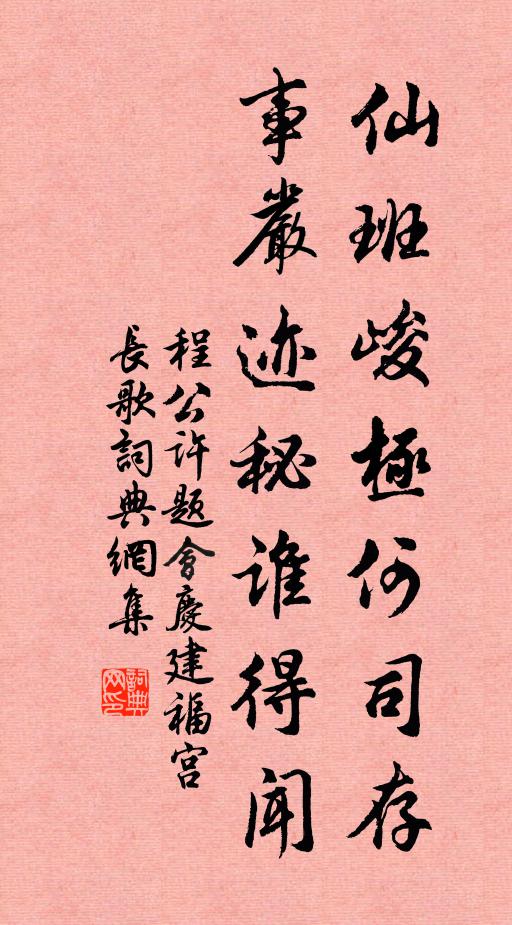 仙班峻極何司存
事嚴迹秘誰得聞
程公许题會慶建福宫
長歌詞典網集
詞典網印